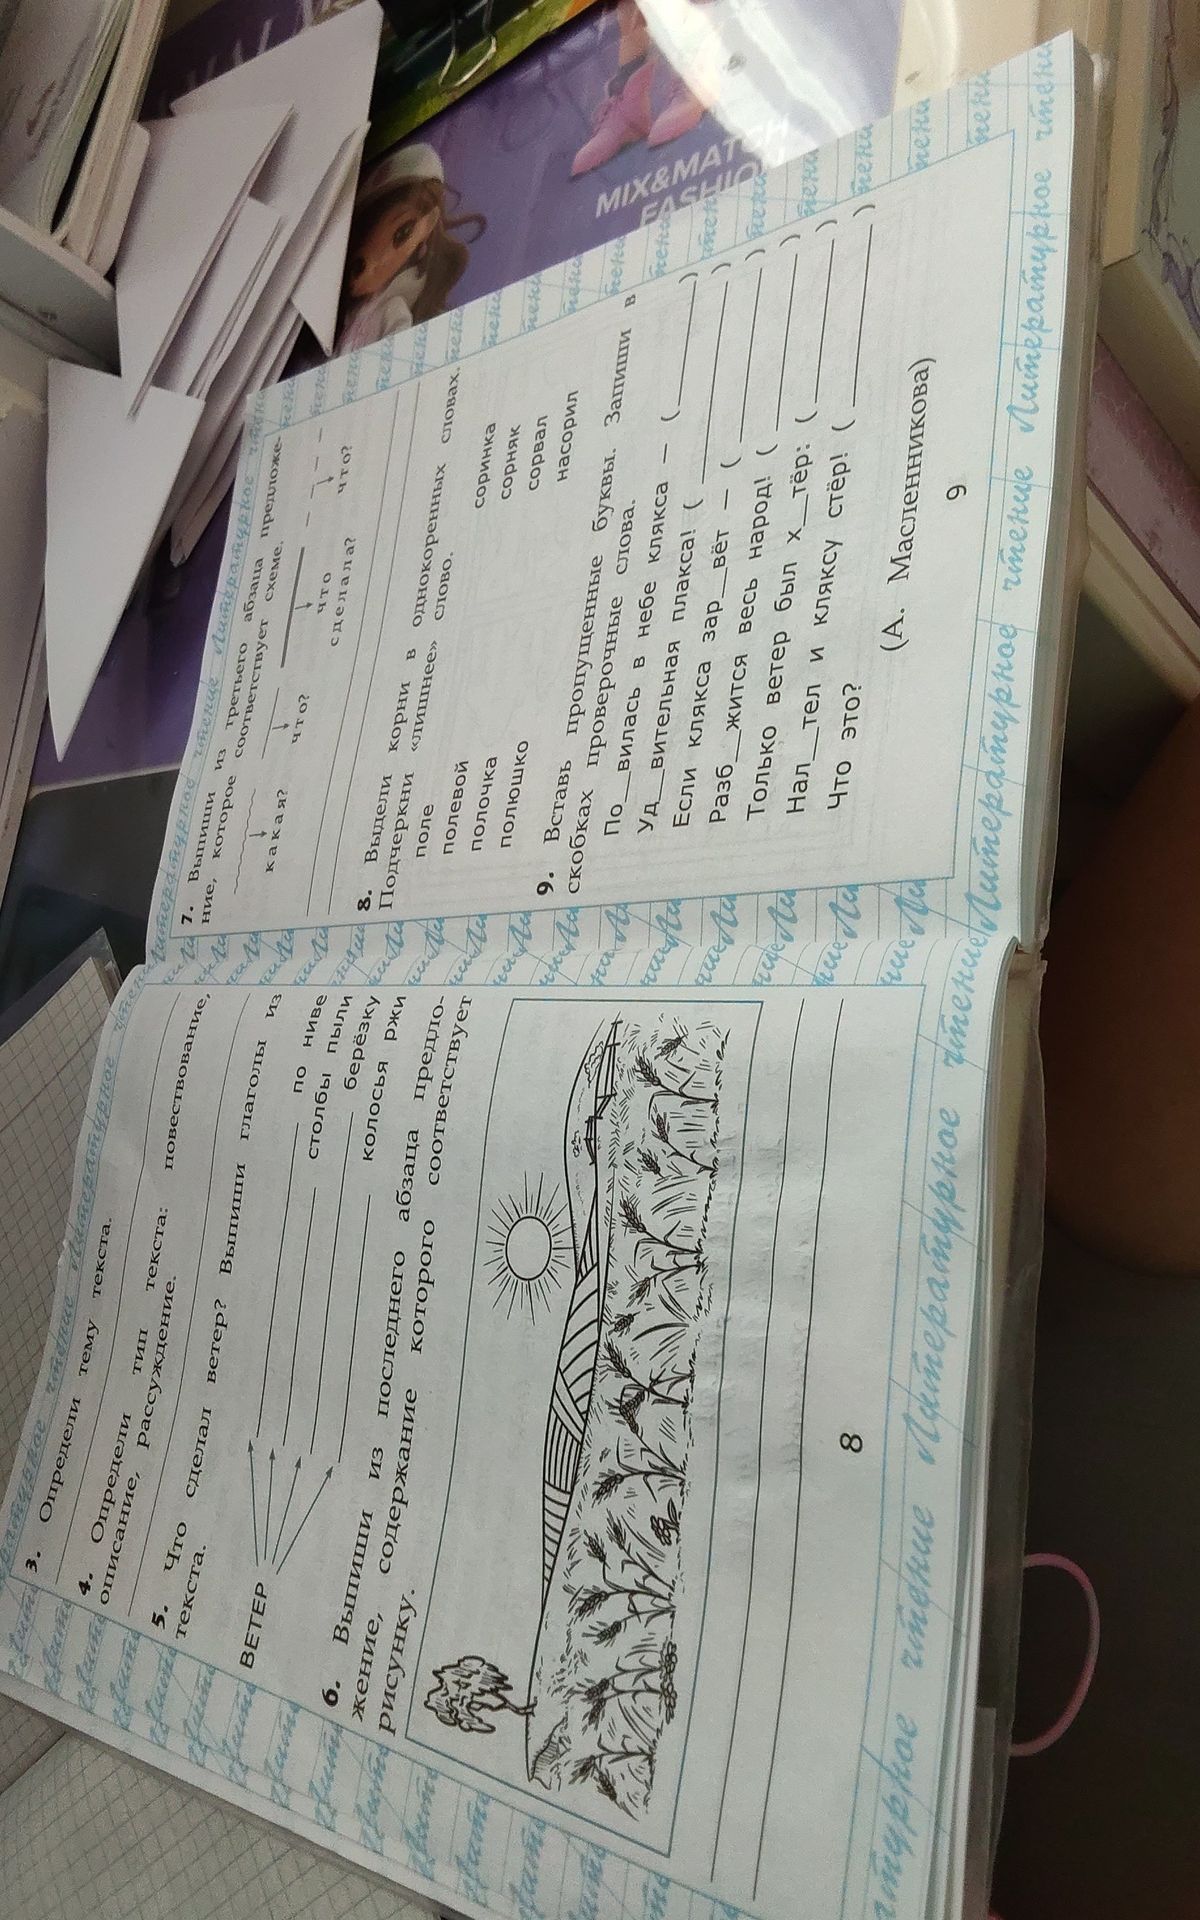 3. Определи тему текста.
4. Определи тип текста: повествование,
описание, рассуждение.
5. Что сделал ветер? Выпиши глаголы из
текста.
ВЕТЕР
по ниве
столбы пыли
берёзку
колосья ржи
6. Выпиши из последнего абзаца предло-
жение, содержание которого соответствует
рисунку.
8
7. Выпиши из третьего абзаца предложе-
ние, которое соответствует схеме.
какая? что? что сделала? что?
8. Выдели корни в однокоренных словах.
Подчеркни «лишнее» слово.
поле соринка
полевой сорняк
полочка сорвал
полюшко насорил
9. Вставь пропущенные буквы. Запиши в
скобках проверочные слова.
По__вилась в небе клякса – (________)
Уд__вительная плакса! (________)
Если клякса зар__вёт – (________)
Разб__жится весь народ! (________)
Только ветер был х__тёр: (________)
Нал__тел и кляксу стёр! (________)
Что это?
(А. Масленникова)
9
Литературное чтение Литературное чтение
MIX&MATCH
FASHION